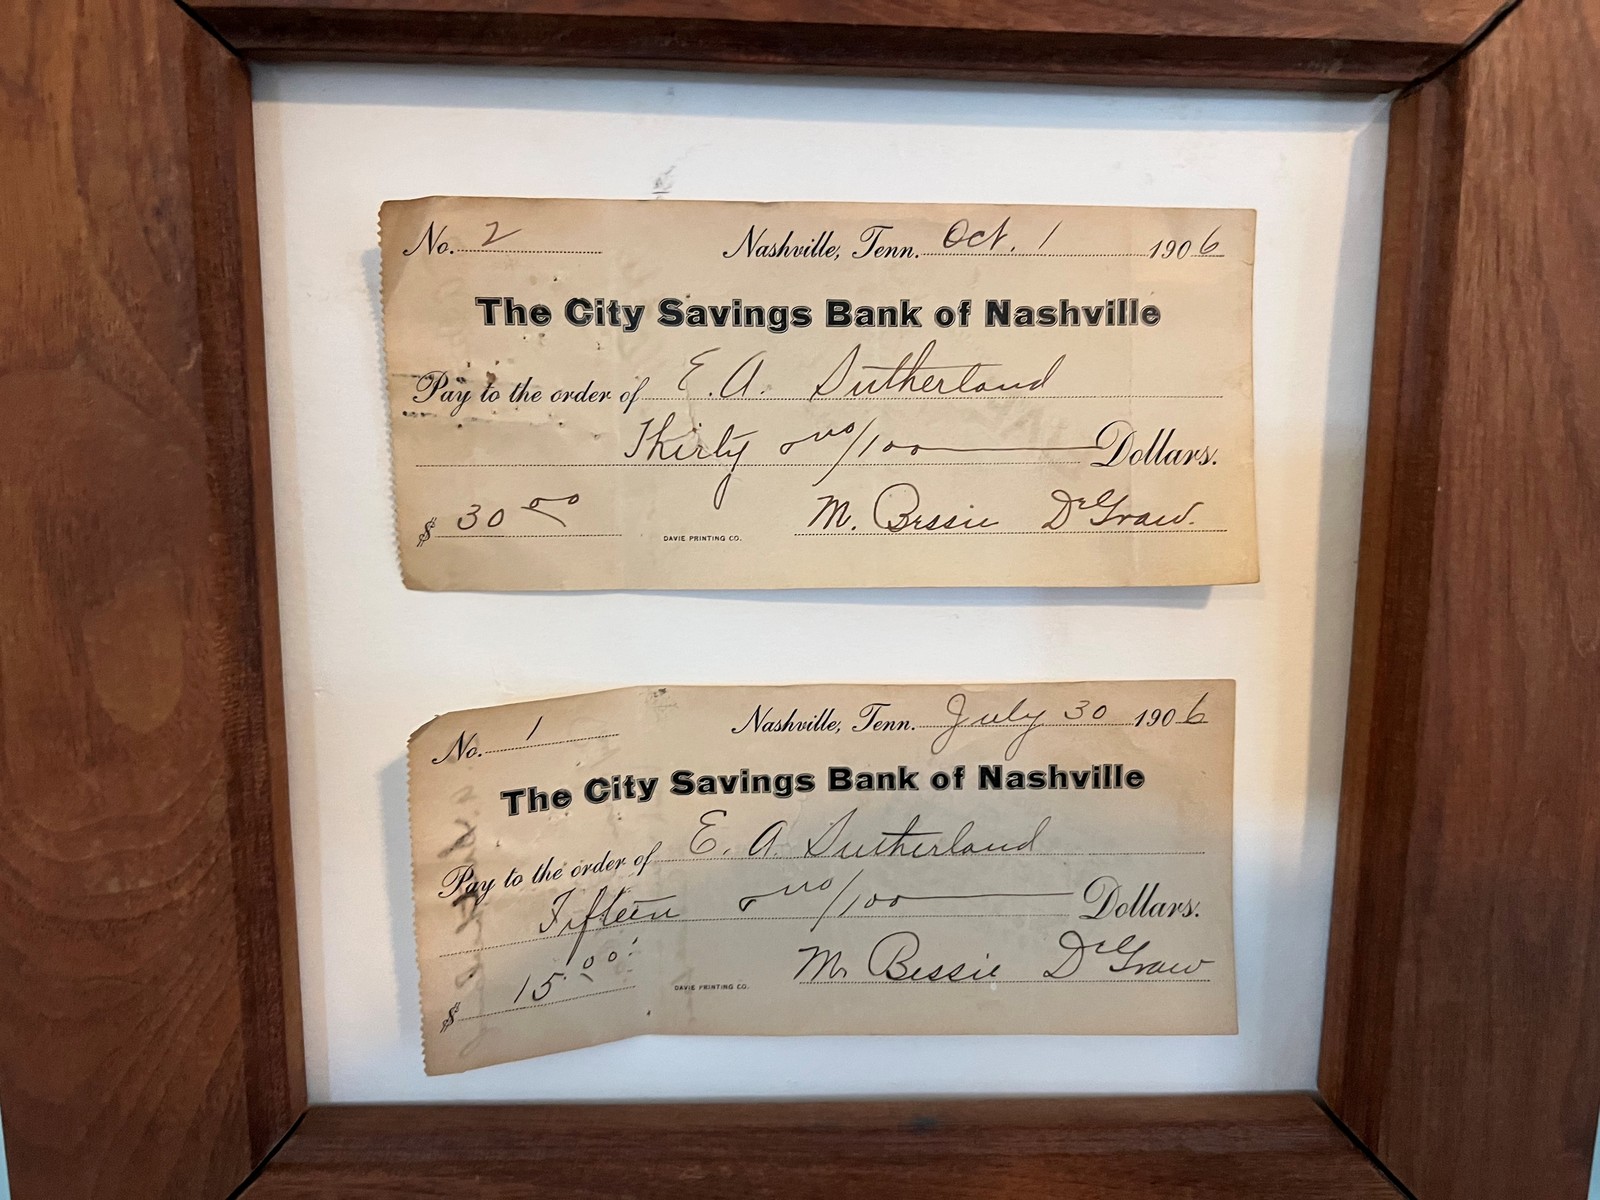 No. 2 Nashville, Tenn. Oct. 1 1906
The City Savings Bank of Nashville
Pay to the order of E. A. Sutherland
Thirty and no/100 Dollars.
$ 30 00 DAVIE PRINTING CO. M. Bessie DeGraw.
No. 1 Nashville, Tenn. July 30 1906
The City Savings Bank of Nashville
Pay to the order of E. A. Sutherland
Fifteen no/100 Dollars.
$ 15.00 DAVIE PRINTING CO. M. Bessie DeGraw